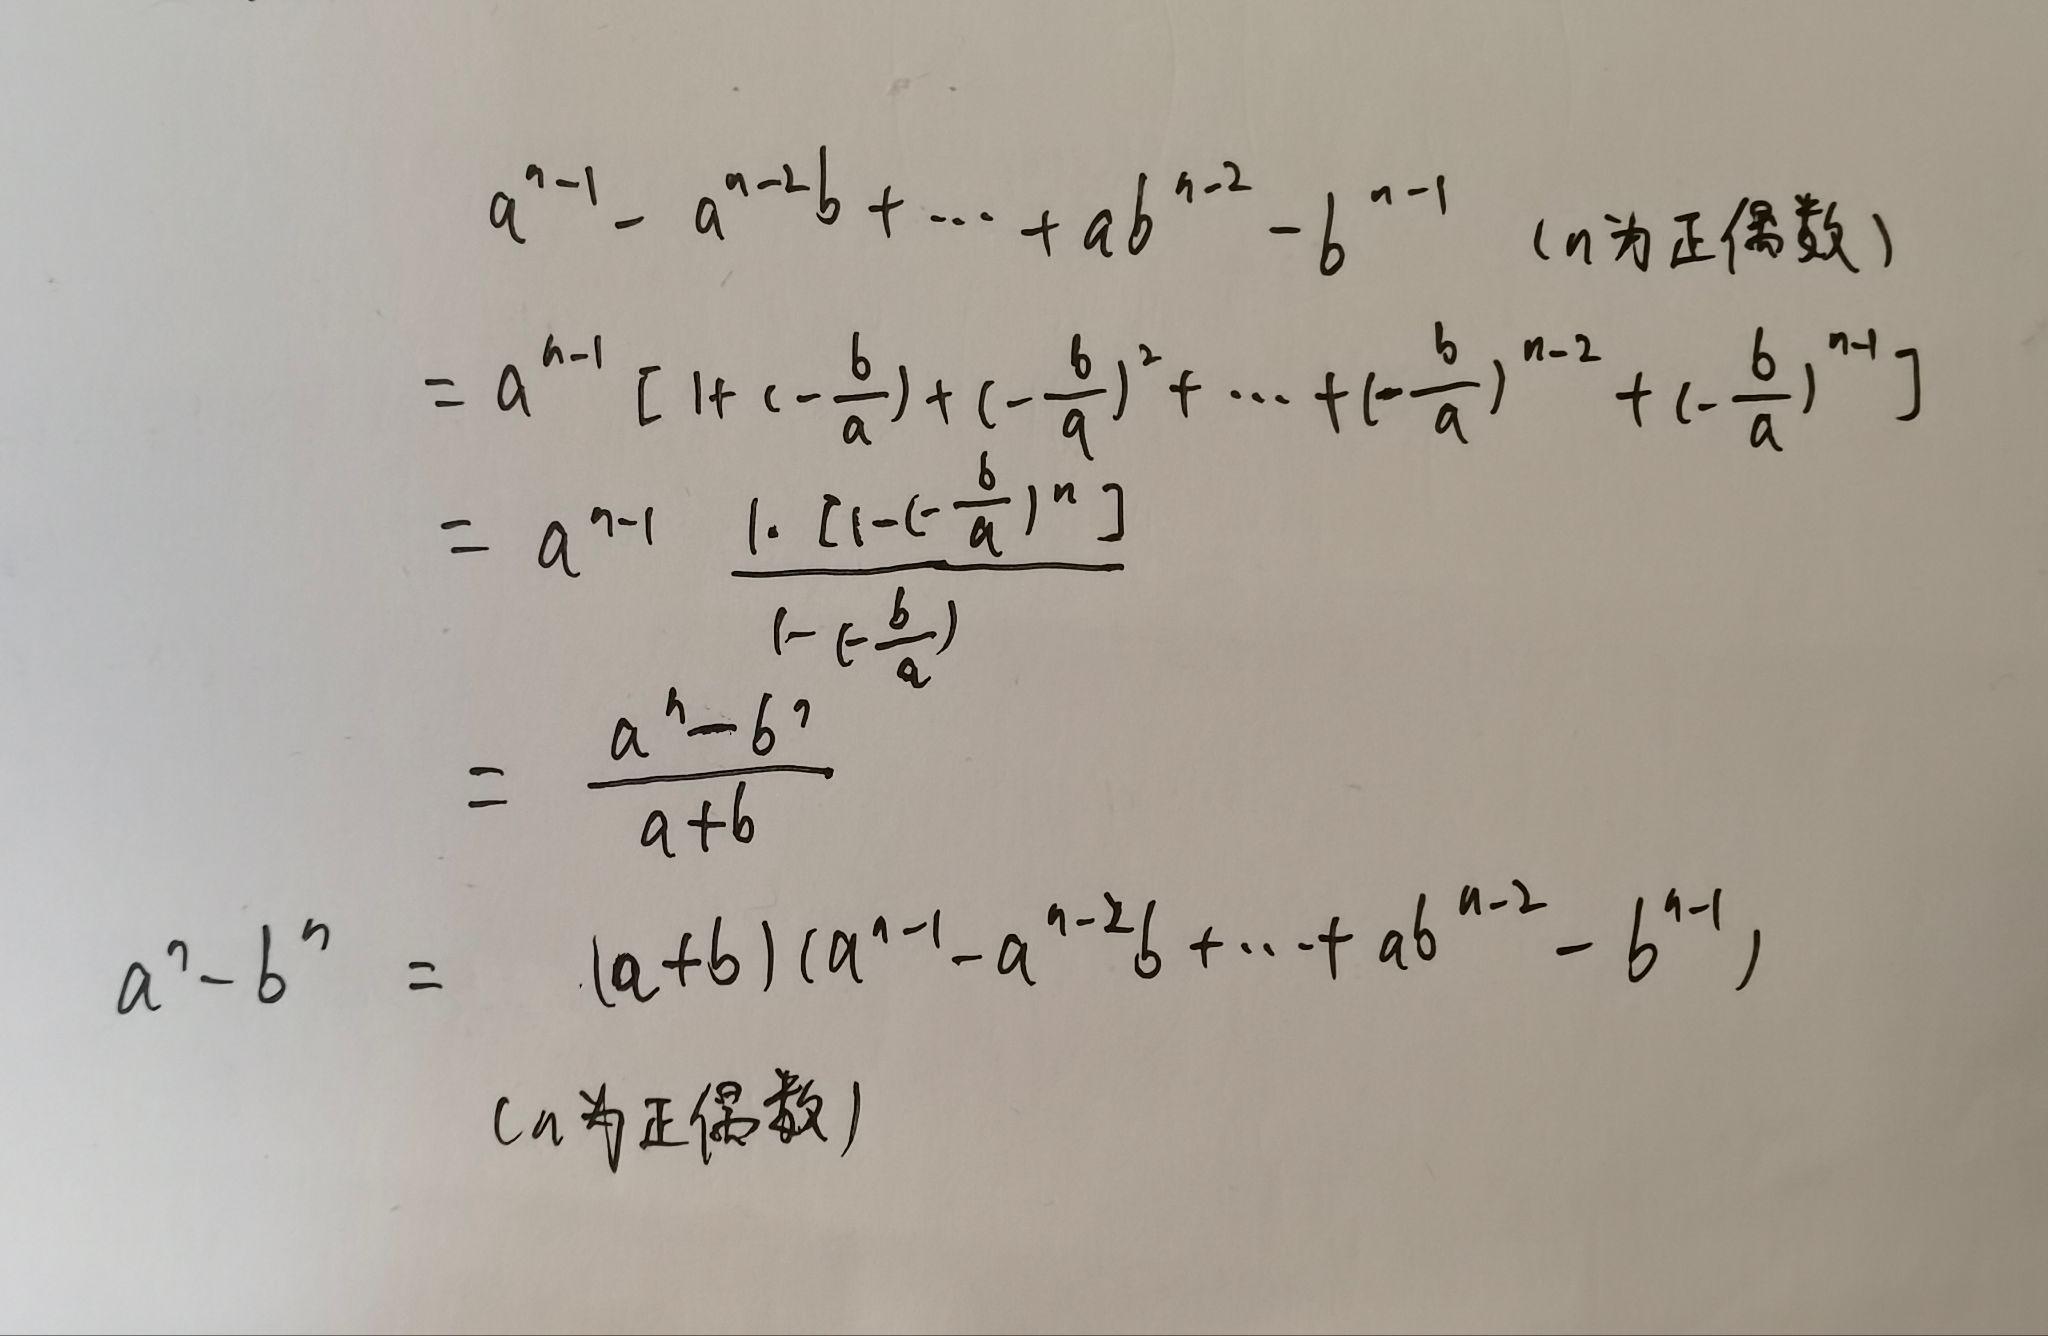 a^{n-1} - a^{n-2}b + ... + ab^{n-2} - b^{n-1} (n为正偶数)
= a^{n-1} [1 + (-\frac{b}{a}) + (-\frac{b}{a})^2 + ... + (-\frac{b}{a})^{n-2} + (-\frac{b}{a})^{n-1}]
= a^{n-1} \frac{1·[1-(-\frac{b}{a})^n]}{1-(-\frac{b}{a})}
= \frac{a^n - b^n}{a+b}
a^n - b^n = (a+b)(a^{n-1} - a^{n-2}b + ... + ab^{n-2} - b^{n-1})
(n为正偶数)